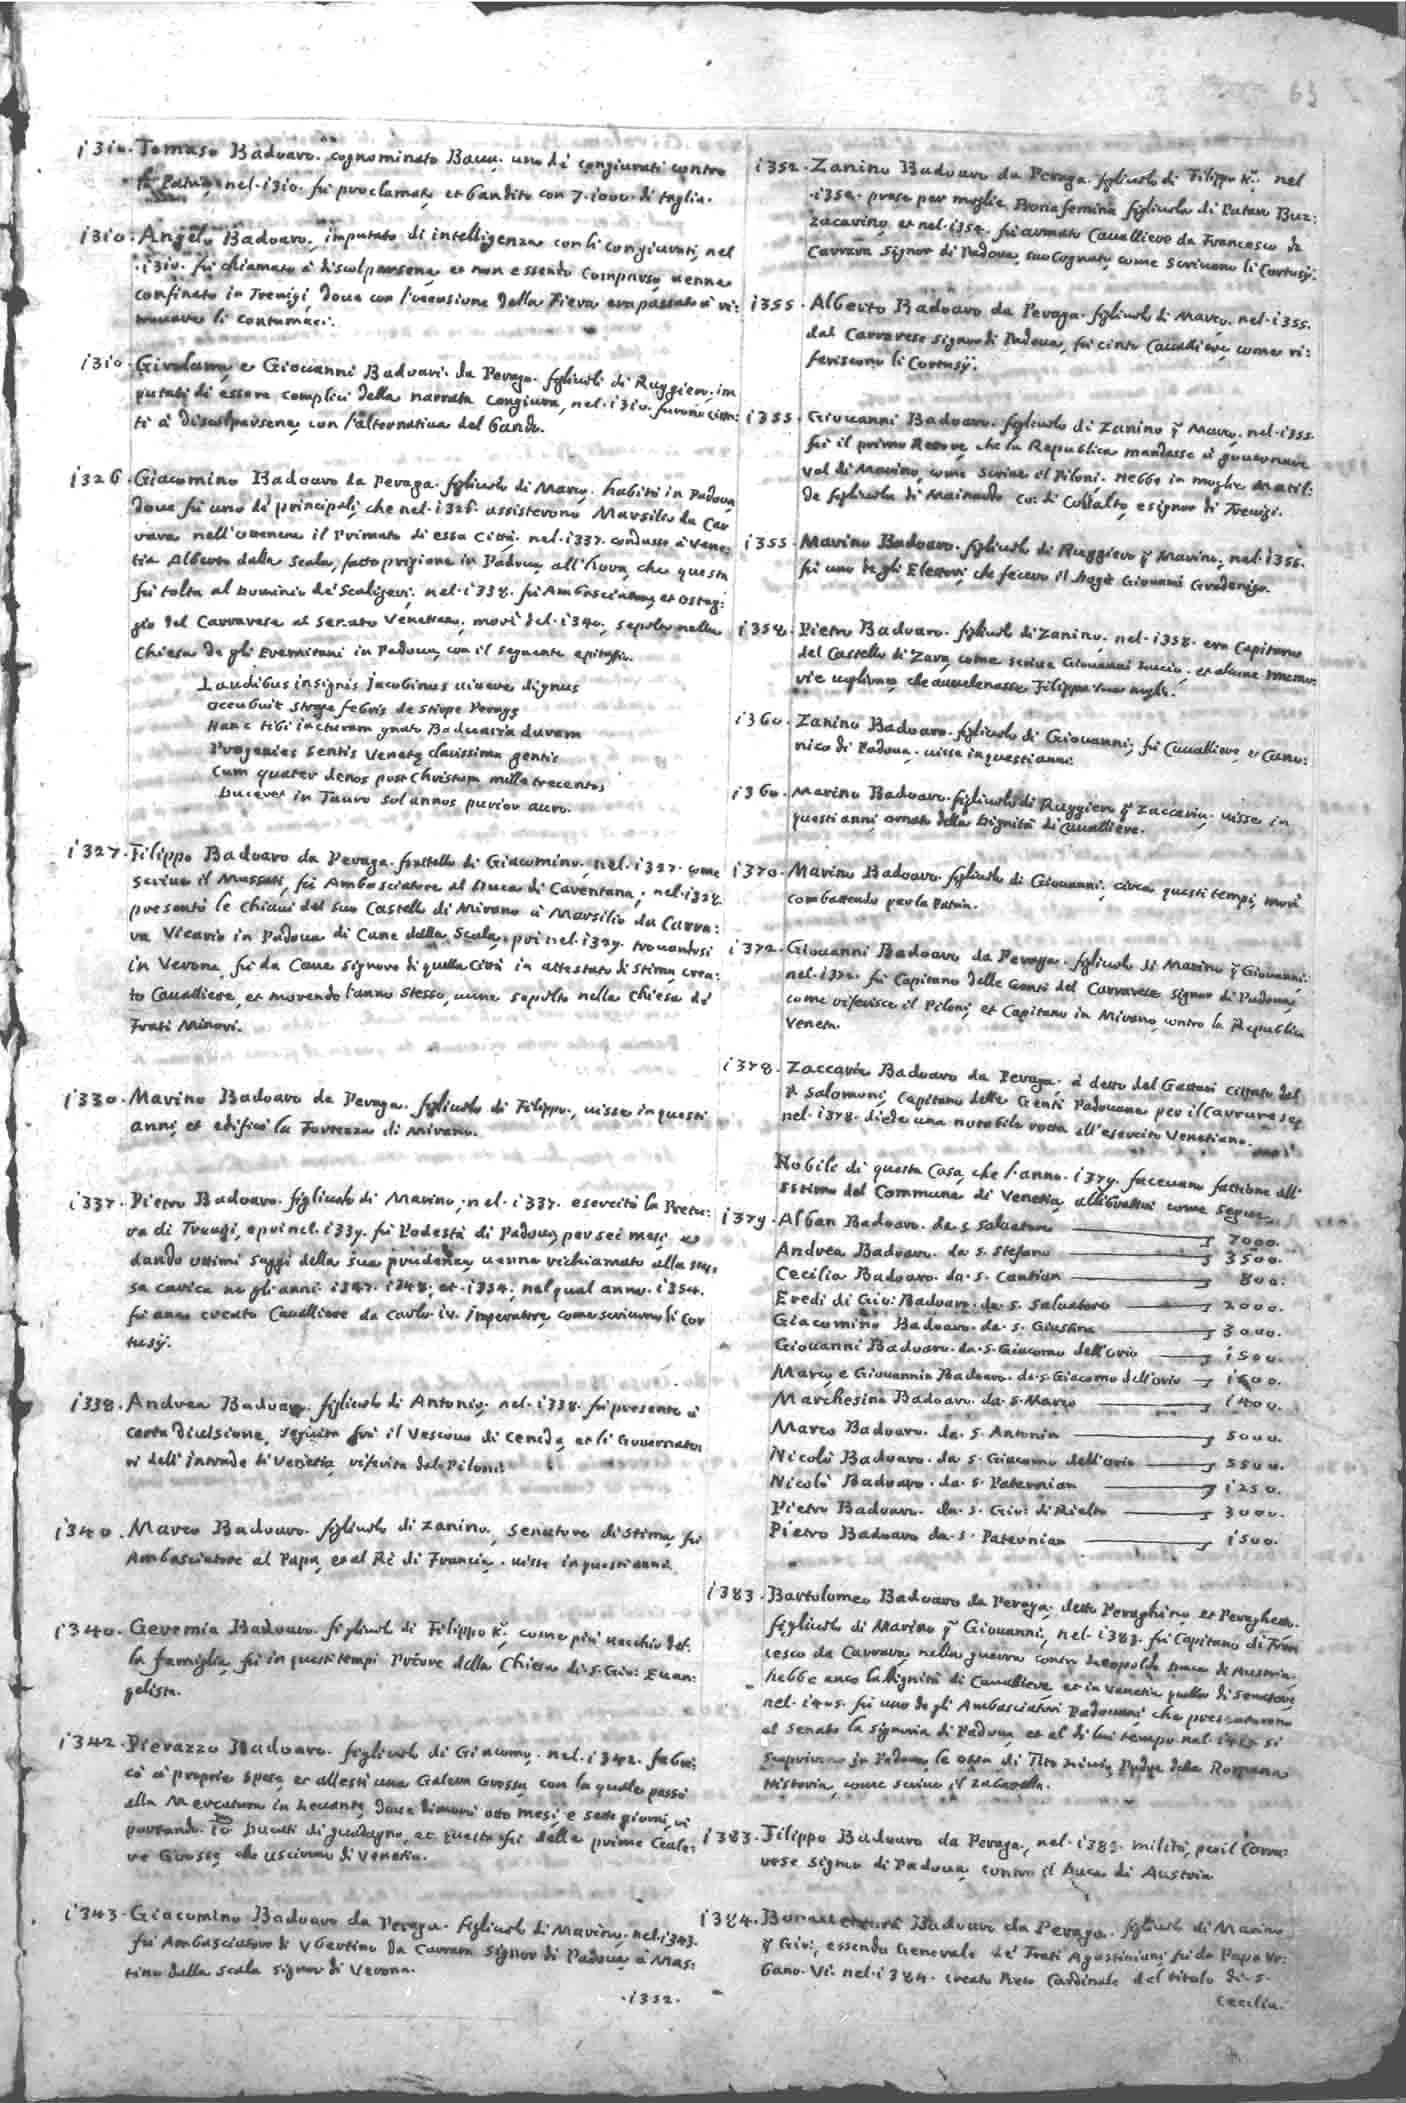 63
1310. Tomaso Badoaro. cognominato Bacu. uno dè congiurati contro
la Patria, nel. 1310. fù proclamato, et bandito con 7. 1000. di taglia.
1310. Angelo Badoaro, imputato di intelligenza con li congiurati, nel
.1310. fù chiamato à discolparsene, et non essendo comparso, uenne
confinato in Treuigi, doue con l'occasione della Fiera era passato à ri:
trouare li contumaci.
1310. Girolamo, e Giouanni Badoari. da Peraga. figliuoli di Ruggiero, im
putati di essere complici della narrata congiura, nel. 1310. furono cita:
ti à discolparsene, con l'alternatiua del bando.
1326. Giacomino Badoaro da Peraga. figliuolo di Marco, habitò in Padoua,
doue fù uno dè principali, che nel. 1326. assisterono Marsilio da Car
rara nell'ottenere il Primato di essa Città. nel. 1337. condusse à Vene:
tia Alberto dalla Scala, fatto prigione in Padoua, all'hora, che questa
fù tolta al Dominio de Scaligeri. nel. 1338. fù Ambasciatore, et Ostag:
gio del Carrarese al Senato Venetiano, morì del. 1340. sepolto nella
Chiesa de gli Eremitani in Padoua, con il seguente epitafio.
Laudibus insignis Jacobinus uiuere dignus
occubuit strage febris de stirpe Perage
Hanc tibi iacturam gnate Baduaria duram
Progenies sentis Venete clarissima gentis
Cum quater denos post Christum mille trecentos
Duceret in Tauro sol annos purior auro.
1327. Filippo Badoaro da Peraga. frattello di Giacomino, nel. 1327. come
scriue il Mussati, fù Ambasciatore al Duca di Caventana, nel. 1328.
presentò le chiaui del suo Castello di Mirano à Marsilio da Carra:
ra Vicario in Padoua di Cane della Scala, poi nel. 1329. trouandosi
in Verona, fù da Cane Signore di quella Città in attestato di stima, crea:
to Caualliere, et morendo l'anno stesso, uenne sepolto nella Chiesa dè
Frati Minori.
1330. Marino Badoaro da Peraga. figliuolo di Filippo, uisse in questi
anni, et edificò la Fortezza di Mirano.
1337. Pietro Badoaro. figliuolo di Marino, nel. 1337. esercitò la Pretu:
ra di Treuigi, e poi nel. 1339. fù Podestà di Padoua, per sei mesi,
dando ottimi saggi della sua prudenza, uenne richiamato alla stes:
sa carica ne gli anni. 1347. 1348. et. 1354. nel qual anno. 1354.
fù anco creato Caualliere da Carlo. iv. Imperatore, come scriuono li Cor
tusij.
1338. Andrea Badoaro. figliuolo di Antonio, nel. 1338. fù presente à
certa diuisione, seguita frà il Vescouo di Ceneda, et li Gouernato:
ri dell'Intrade di Venetia, riferita dal Piloni.
1340. Marco Badoaro. figliuolo di Zanino, Senatore di stima, fù
Ambasciatore al Papa, et al Rè di Francia. uisse in questi anni.
1340. Geremia Badoaro. figliuolo di Filippo K.r, come più uecchio del:
la famiglia, fù in questi tempi Prouue della Chiesa di S. Gio: Euan:
gelista.
1342. Pierazzo Badoaro. figliuolo di Giacomo, nel. 1342. fabri:
cò à proprie spese, et allestì una Galera Grossa, con la quale passò
alla Mercatura in Leuante, doue dimorò otto mesi, e sette giorni, ri
portando. Ducati di guadagno, et questa fù delle prime Gale:
re Grosse, che uscirono di Venetia.
1343. Giacomino Badoaro da Peraga. figliuolo di Marino, nel. 1343.
fù Ambasciatore di Vbertino da Carrara Signor di Padoua, à Mas:
tino dalla Scala Signor di Verona.
.1352.
1352. Zanino Badoaro da Peraga. figliuolo di Filippo K.r nel
.1352. prese per moglie Boniafemina figliuola di Pataro Buz:
zacarino, et nel. 1352. fù armato Caualliere da Francesco da
Carrara Signor di Padoua, suo Cognato, come scriuono li Cortusij.
1355. Alberto Badoaro da Peraga. figliuolo di Marco, nel. 1355.
dal Carrarese Signor di Padoua, fù cinto Caualliere, come ri:
feriscono li Cortusij.
1355. Giouanni Badoaro. figliuolo di Zanino q. Marco, nel. 1355.
fù il primo Rettore, che la Republica mandasse à gouernare
Val di Marino, come scriue il Piloni. Hebbe in moglie Matil:
de figliuola di Mainardo Co: di Collalto, e signor di Treuigi.
1355. Marino Badoaro. figliuolo di Ruggiero q. Marino, nel. 1355.
fù uno de gli Elettori, che fecero il Dogè Giouanni Gradenigo.
1358. Pietro Badoaro. figliuolo di Zanino, nel. 1358. era Capitano
del Castello di Zara, come scriue Giouanni Lucio, et alcune memo:
rie uogliono, che auuelenasse Filippa sua moglie.
1360. Zanino Badoaro. figliuolo di Giouanni, fù Caualliere, et Cano:
nico di Padoua. uisse in questi anni.
1360. Marino Badoaro. figliuolo di Ruggiero q. Zaccaria, uisse in
questi anni, ornato della Dignità di Caualliere.
1370. Marino Badoaro. figliuolo di Giouanni, circa questi tempi, morì
combattendo per la Patria.
1372. Giouanni Badoaro da Peraga. figliuolo di Marino q. Giouanni,
nel. 1372. fù Capitano delle Genti del Carrarese Signor di Padoua,
come riferisce il Piloni, et Capitano in Mirano, contro la Republica
Veneta.
1378. Zaccaria Badoaro da Peraga, à detto del Gattari cittato del
P. Salomoni, Capitano delle Genti Padouane per il Carrarese,
nel. 1378. diede una notabile rotta all'esercito Venetiano.
Nobili di questa Casa, che l'anno. 1379. faceuano fattione all'
Estimo del Commune di Venetia, allibrati come segue.
1379. Alban Badoaro. da S. Saluatore 7000.
Andrea Badoaro. da S. Stefano 3500.
Cecilia Badoaro. da. S. Cantian 800.
Eredi di Gio: Badoaro. da. S. Saluatore 2000.
Giacomino Badoaro. da. S. Giustina 3000.
Giouanni Badoaro. da. S. Giacomo dell'orio 1500.
Marco, e Giouannin Badoaro. da. S. Giacomo dell'orio 1600.
Marchesina Badoaro. da. S. Marco 1400.
Marco Badoaro. da. S. Antonin 5000.
Nicolò Badoaro. da S. Giacomo dell'orio 5500.
Nicolò Badoaro. da S. Paternian 1250.
Pietro Badoaro. da. S. Gio: di Rialto 3000.
Pietro Badoaro da. S. Paternian 1500.
1383. Bartolomeo Badoaro da Peraga, detto Peraghino, et Peraghetto.
figliuolo di Marino q. Giouanni, nel. 1383. fù Capitano di Fran
cesco da Carrara, nella guerra contro Leopoldo Duca di Austria.
hebbe anco la Dignità di Caualliere, et in Venetia quella di Senatore,
nel. 1405. fù uno de gli Ambasciatori Padouani, che presentarono
al Senato la Signoria di Padoua, et al di lui tempo nel si
scoprirono in Padoua, le ossa di Tito Liuio, Padre della Romana
Historia, come scriue il Zabarella.
1383. Filippo Badoaro da Peraga, nel. 1383. militò, per il Carra:
rese Signor di Padoua, contro il Duca di Austria.
1384. Badoaro da Peraga. figliuolo di Marino
q. Gio:, essendo Generale dè Frati Agostiniani, fù da Papa Vr:
bano. VI. nel. 1384. creato Prete Cardinale del titolo di. S.
Cecilia.